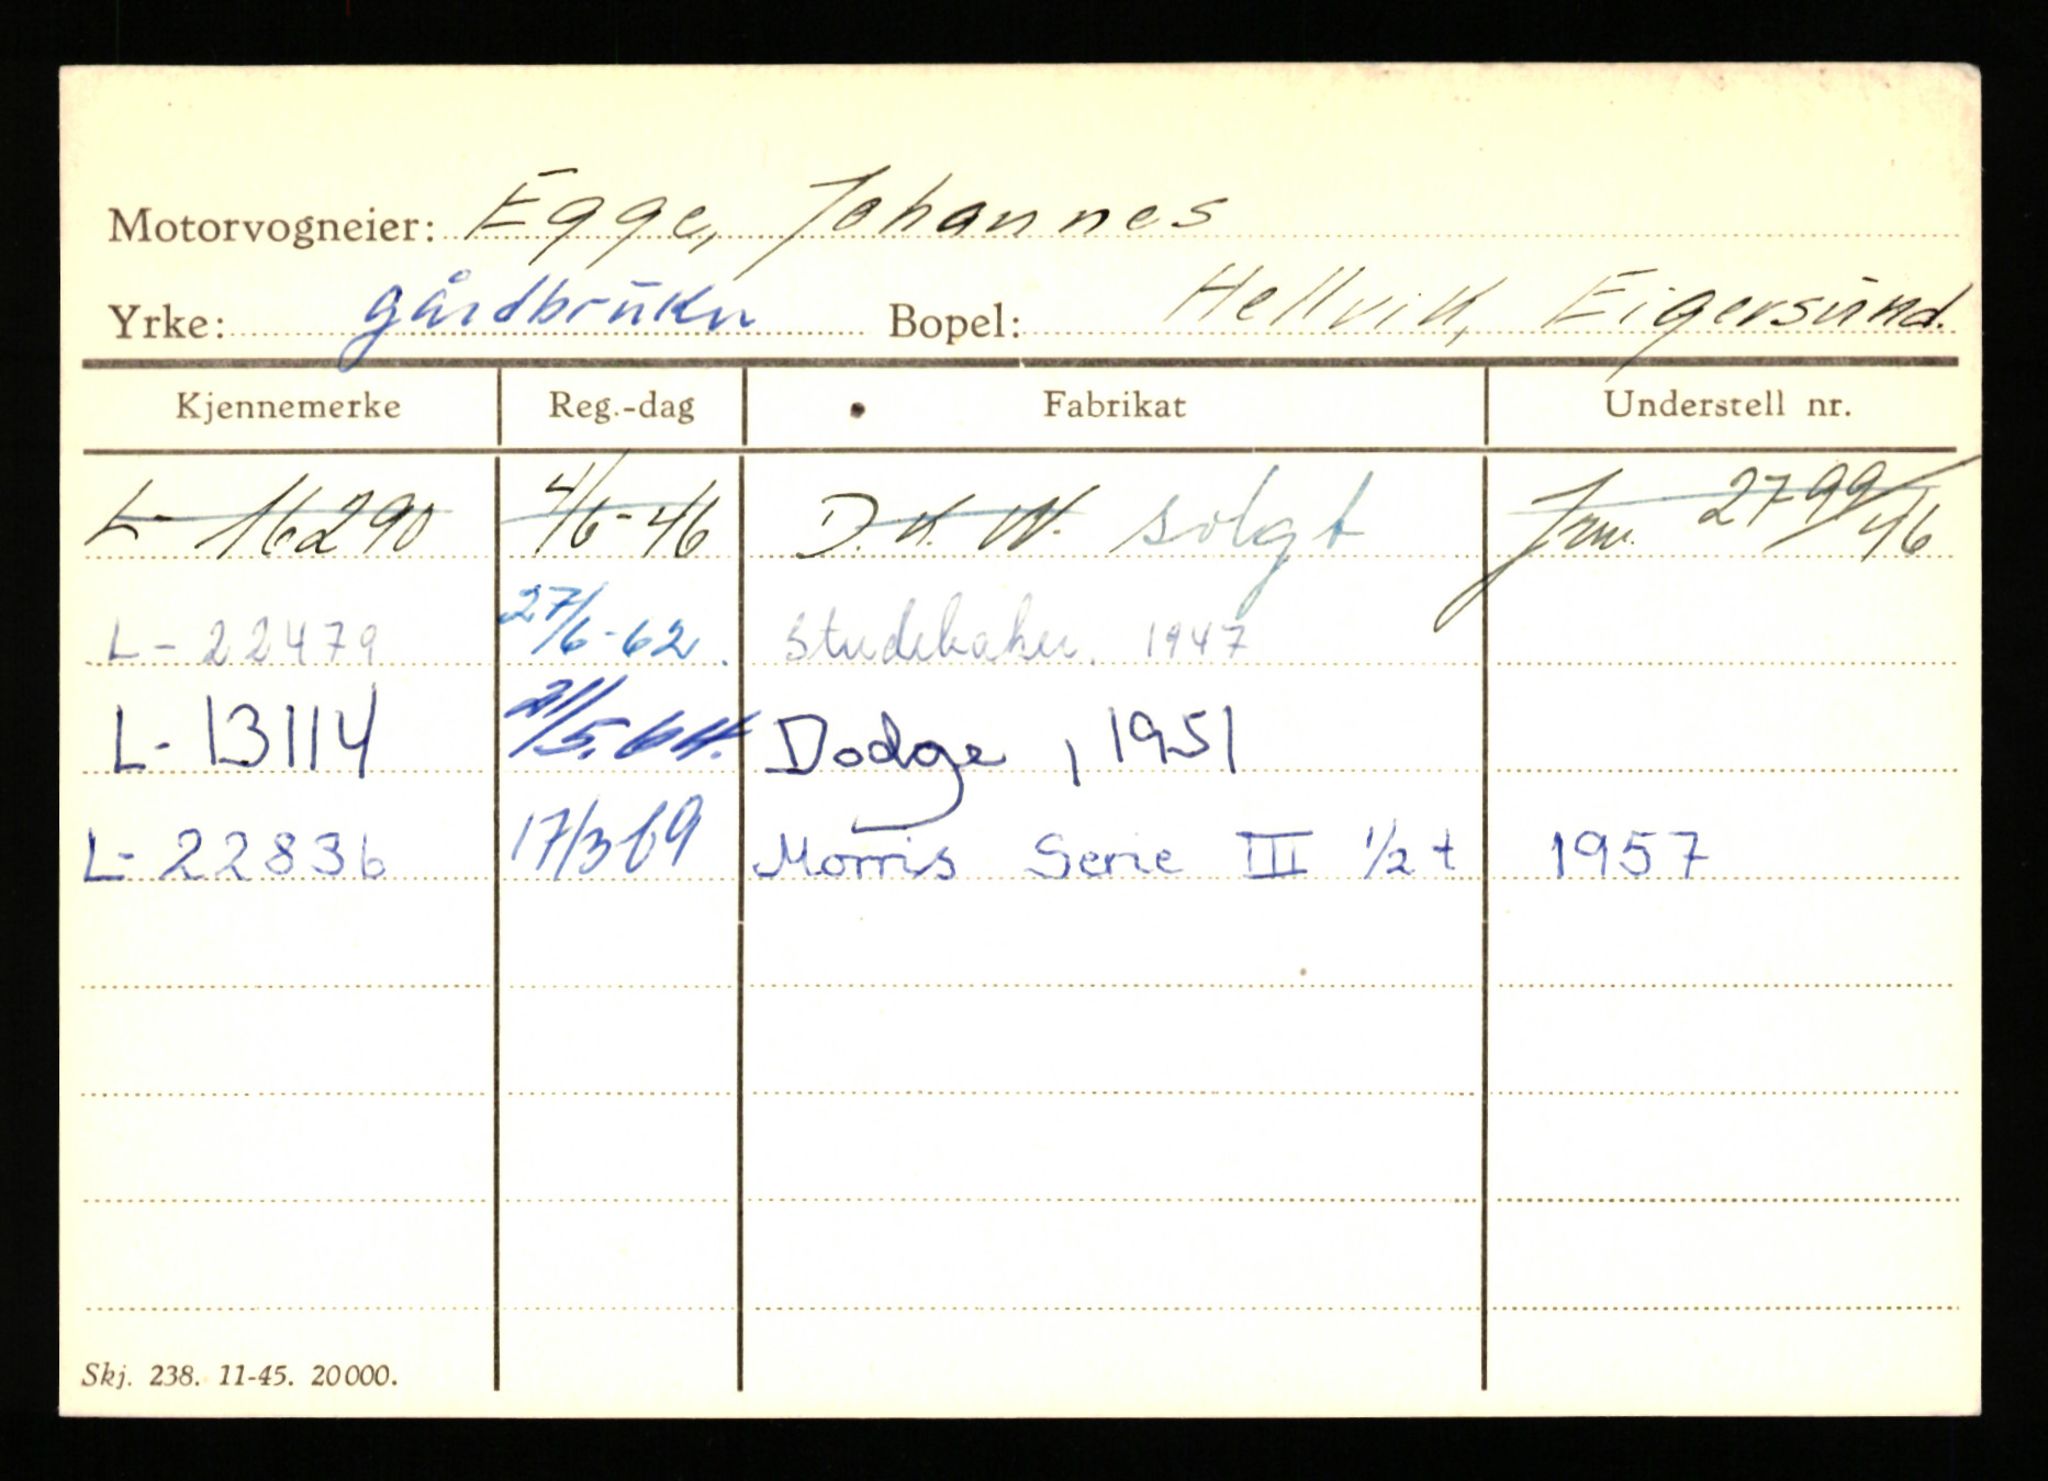 Motorvogneier: Egge, Johannes
Yrke: gårdbruker Bopel: Hellvik, Eigersund.
Kjennemerke Reg.-dag Fabrikat Understell nr.
L- 16290 4/6-46 D.K.W. solgt Jnr. 2799/46
L- 22479 27/6-62. Studebaker. 1947
L- 13114 21/5.64. Dodge, 1951
L- 22836 17/3 69 Morris Serie III 1/2 t 1957
Skj. 238. 11-45. 20000.